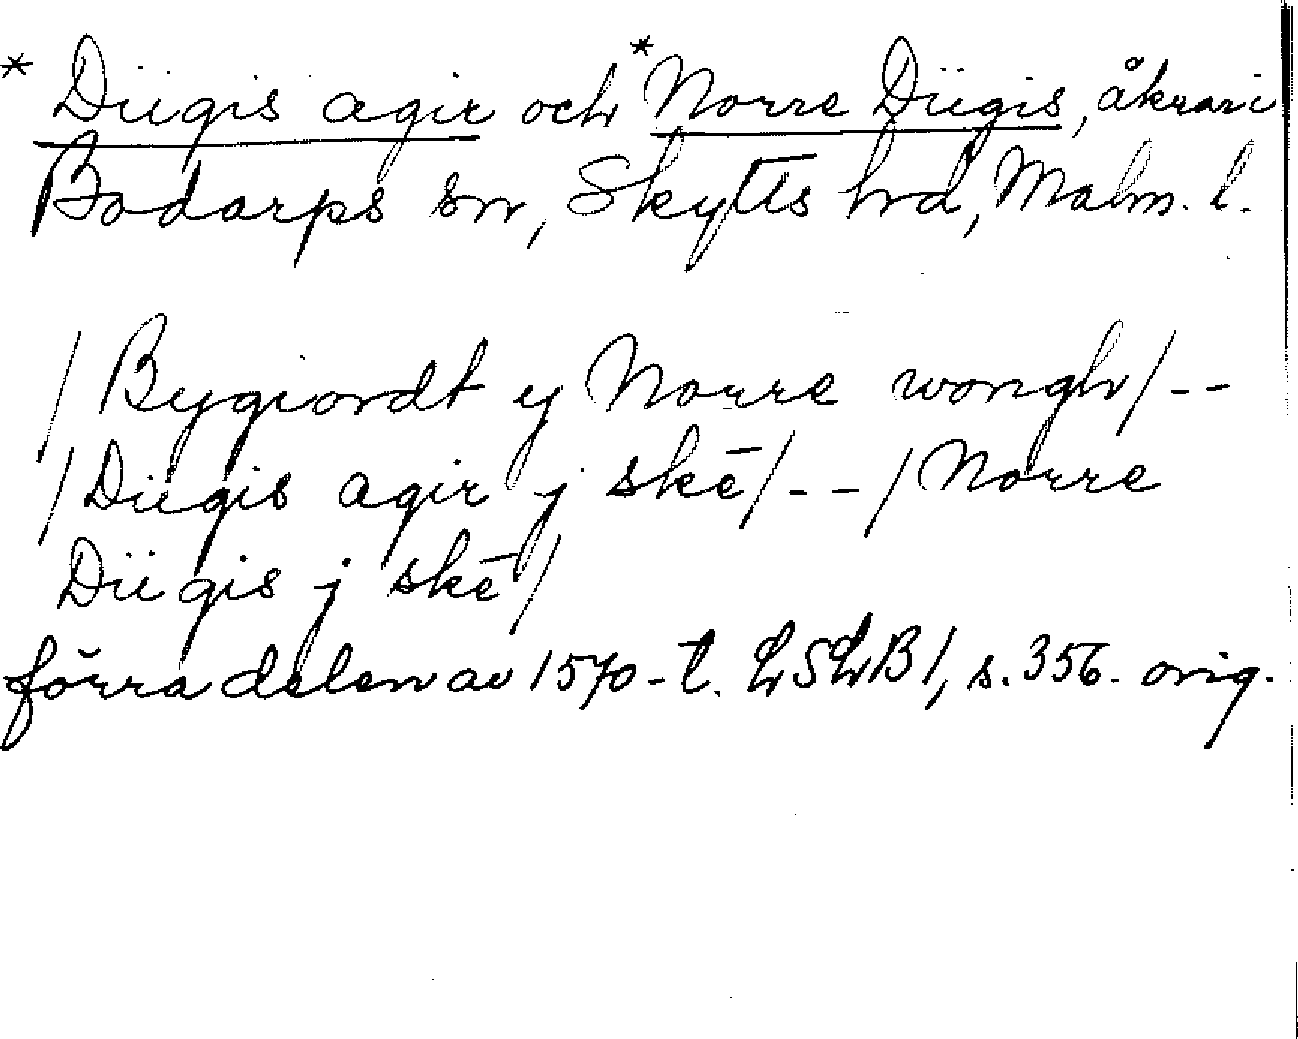 * Diigis agir och *Norre Diigis, åkrar i
Bodarps sn, Skytts hd, Malm. l.
/ Bygiordt y Norre wongh/--
/ Diigis agir j skē/--/ Norre
Diigis j skē/
förra delen av 1570-t. LSLB 1, s. 356. orig.